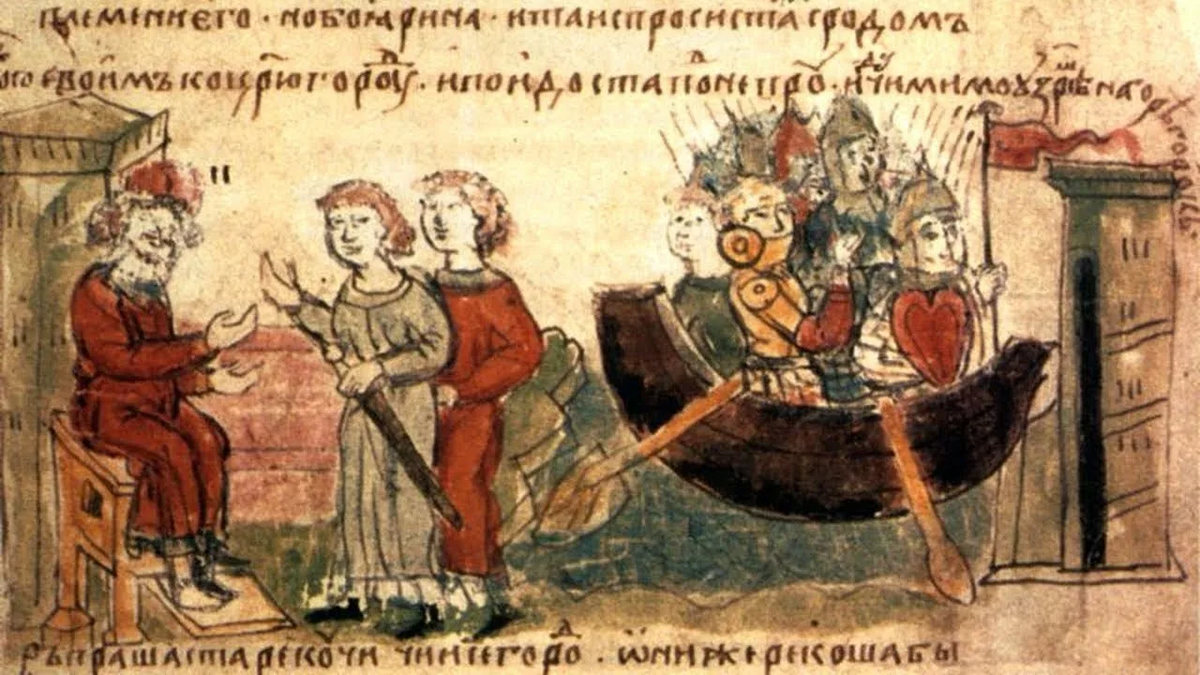 племениєго · нобоꙗрина · итаиспросистасродомъ
своимъкоцр҃югороⷣу · ипоидостапоⷣнепрꙋ · идꙋчимимоузрⷨѣнаго
рѣгородокъ
въпрашастарекочи чиисегороⷣ · ѡнижерекошабы